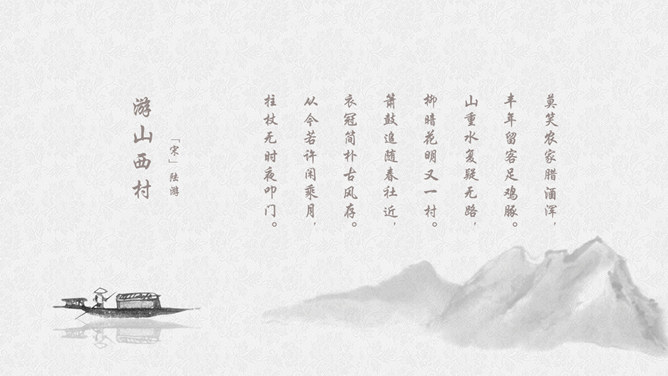 游山西村
「宋」陆游
莫笑农家腊酒浑，
丰年留客足鸡豚。
山重水复疑无路，
柳暗花明又一村。
箫鼓追随春社近，
衣冠简朴古风存。
从今若许闲乘月，
拄杖无时夜叩门。